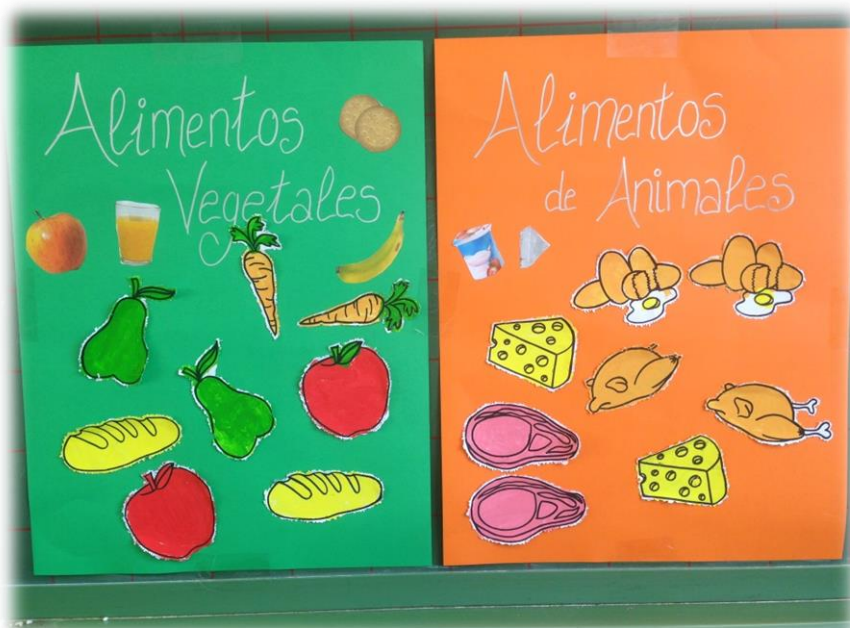 Alimentos
Vegetales
Alimentos
de Animales